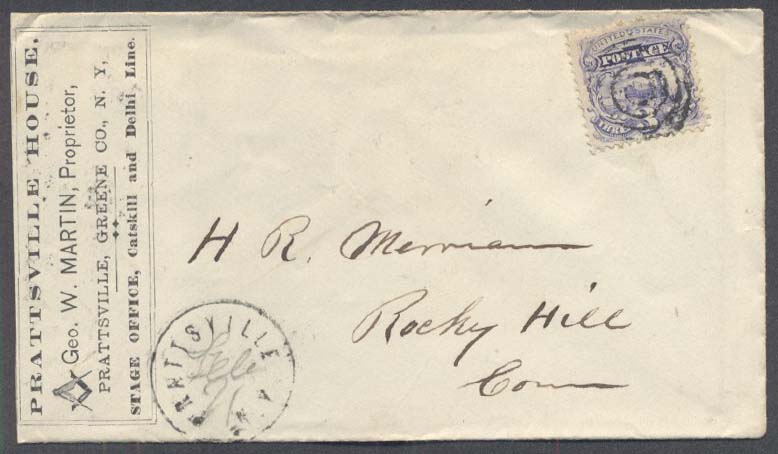 PRATTSVILLE HOUSE.
Geo. W. MARTIN, Proprietor,
PRATTSVILLE, GREENE CO., N. Y.,
STAGE OFFICE, Catskill and Delhi Line.
UNITED STATES
POSTAGE
H R. Merriam
Rocky Hill
Conn
PRATTSVILLE N.Y.